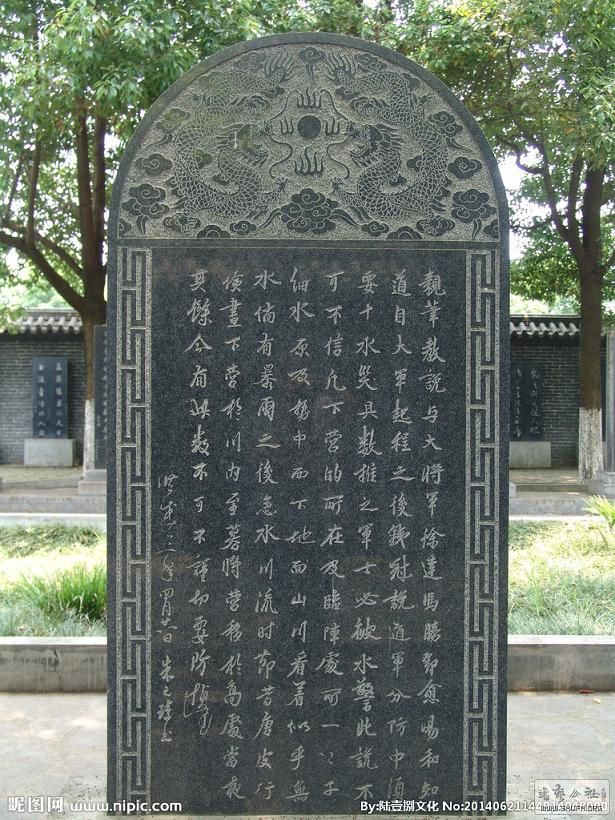 親筆教說与大將軍徐達馮勝鄧愈湯和知
道自大軍起程之後錢冠說道軍分防中須
要十水災具數推之軍士必敵水警此說不
可不信凡下營的所在及臨陣處所一々子
細水原及移中而下地面山川看着似乎無
水倘有暴雨之後急水川流時節昔唐皮行
儉晝下營於川內至暮將營移於高處當夜
其餘今有此數不可不謹切要防慎
洪武三年四月廿日 朱元璋書
昵图网 www.nipic.com
By:陆壹捌文化